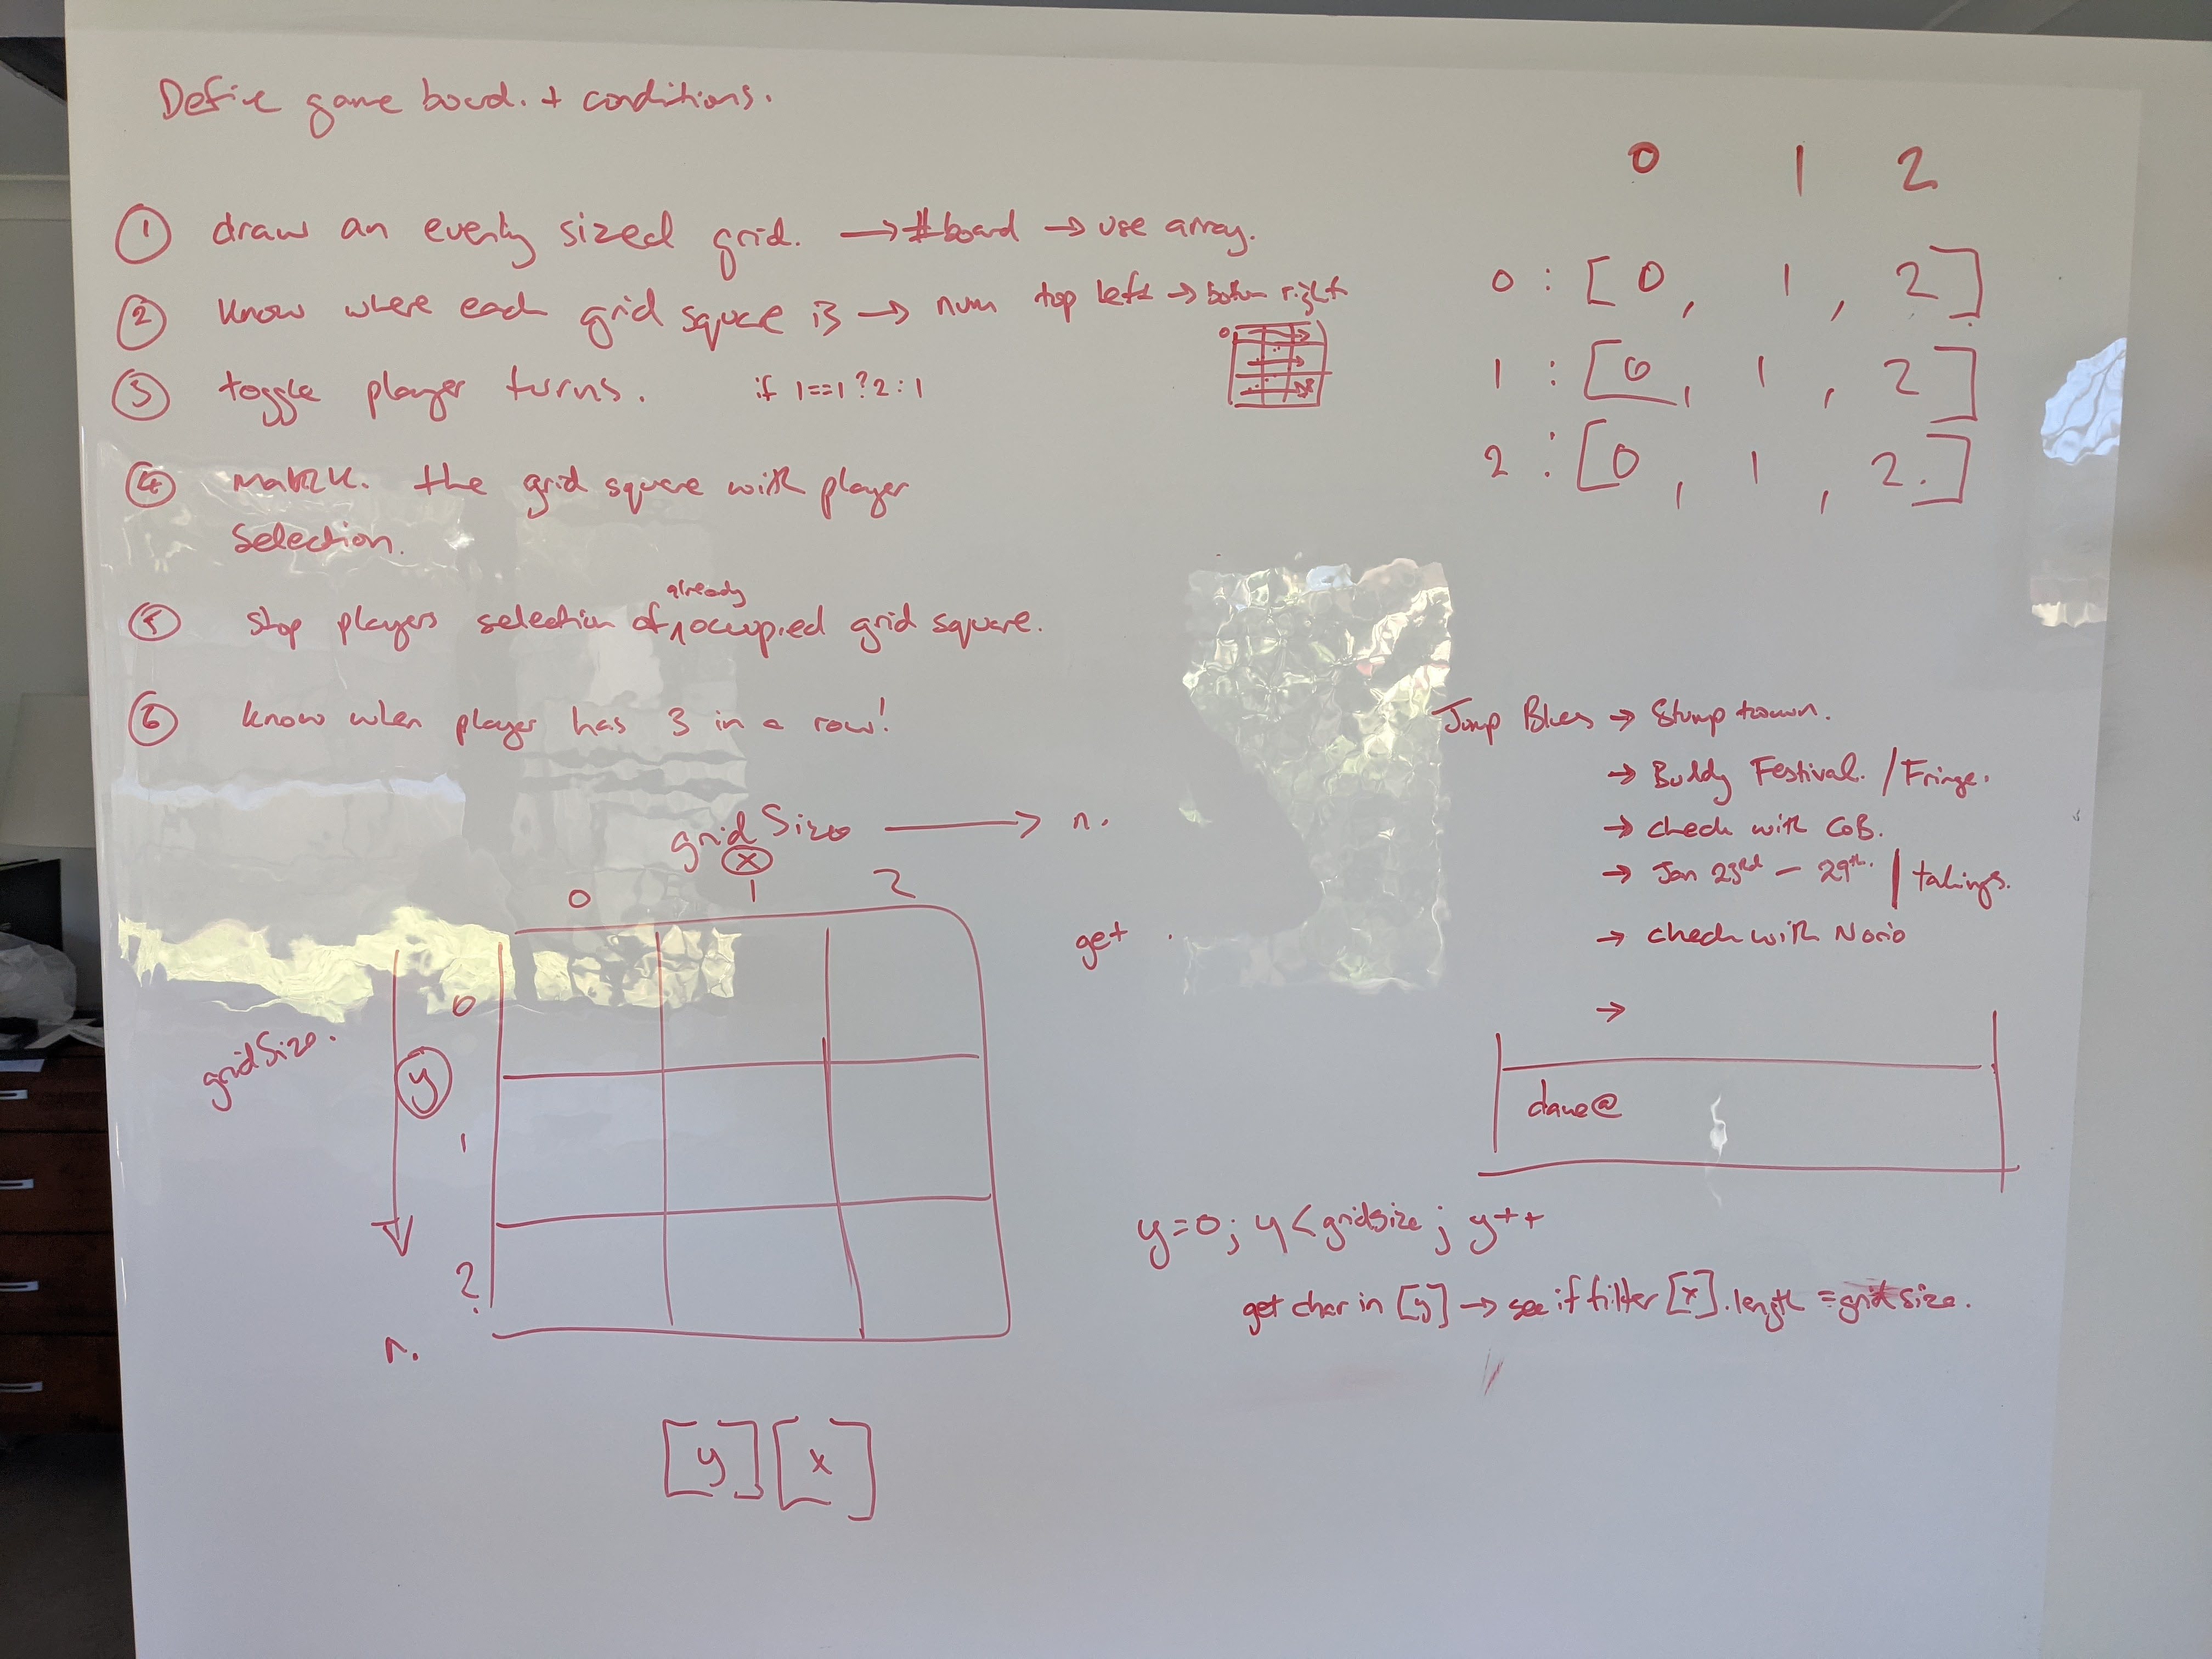 Define game board. + conditions.
① draw an evenly sized grid. → #board → use array.
② know where each grid square is → num top left → bottom right
0
③ toggle player turns. if 1==1 ? 2 : 1
④ mark. the grid square with player
selection.
⑤ stop players selection of already occupied grid square.
⑥ know when player has 3 in a row!
0 1 2
0 : [ 0 , 1 , 2 ]
1 : [ 0 , 1 , 2 ]
2 : [ 0 , 1 , 2. ]
Jump Blues → Stump town.
→ Buddy Festival. / Fringe.
→ check with CoB.
→ Jan 23rd – 29th. | takings.
→ check with Norio
→
dave@
gridSize → n.
x
0 1 2
get .
gridSize.
y
0
1
2
n.
[y][x]
y=0; y<gridsize; y++
get char in [y] → see if filter [x].length = grid size.